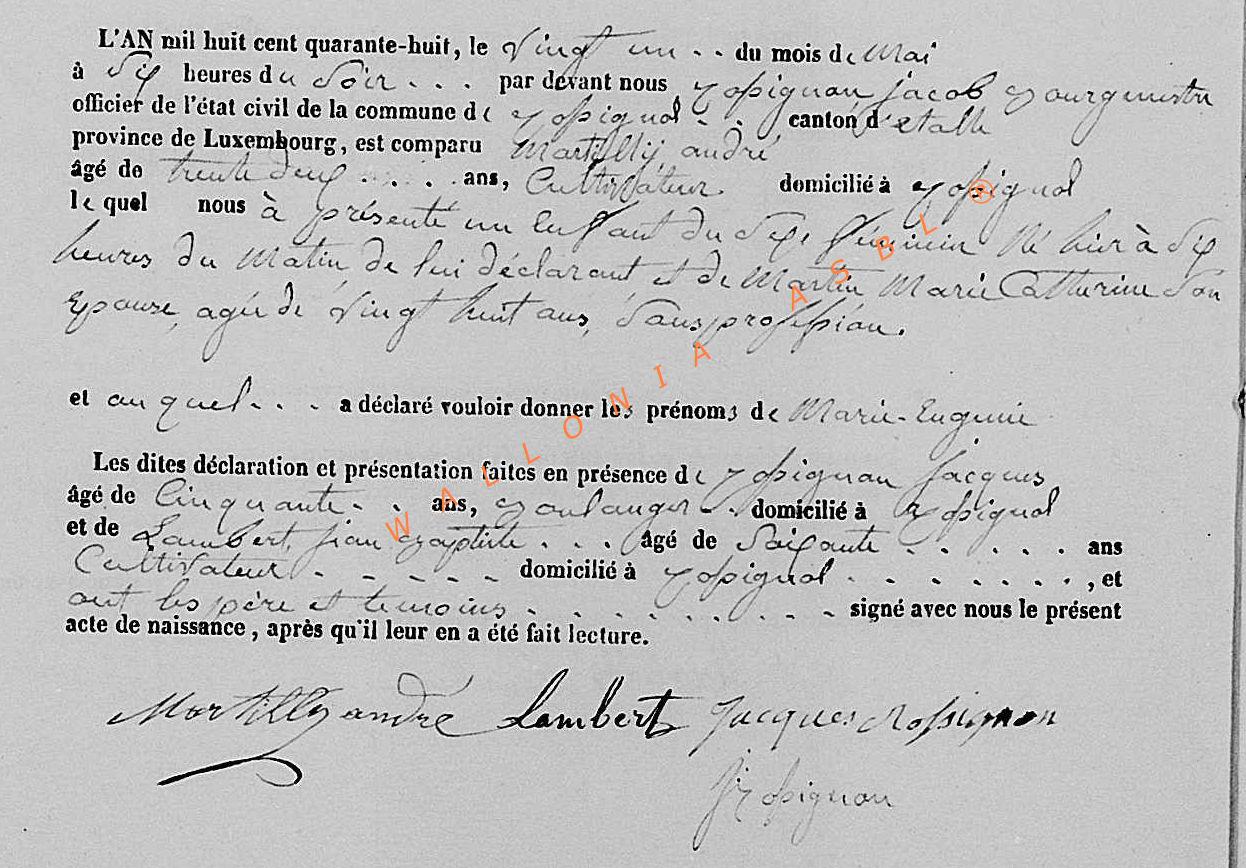 L'AN mil huit cent quarante-huit, le Vingt un . . du mois de Mai
à Six heures du Soir . . . par devant nous Rossignon jacob Bourgmestre
officier de l'état civil de la commune de Rossignol - - canton d'etalle
province de Luxembourg, est comparu Martilly andré
âgé de trente deux . . . . ans, Cultivateur. domicilié à Rossignol
le quel nous à présenté un Enfant du Sexe féminin Né hier à Six
heures du Matin de lui déclarant et de Martin Marie Catherine Son
Epouse, agée de Vingt huit ans, Sans profession.
et auquel . . . a déclaré vouloir donner les prénoms de Marie-Eugenie
Les dites déclaration et présentation faites en présence de Rossignon Jacques
âgé de Cinquante . . ans, Boulanger . . domicilié à Rossignol
et de Lambert, jean Baptiste . . . âgé de Soixante . . . . . . ans
Cultivateur . . . . . domicilié à Rossignol . . . . . . . . , et
ont les père et temoins . . . . . . . . . signé avec nous le présent
acte de naissance, après qu'il leur en a été fait lecture.
Martilly andré Lambert Jacques Rossignon
J Rossignon
WALLONIA ASBL ®